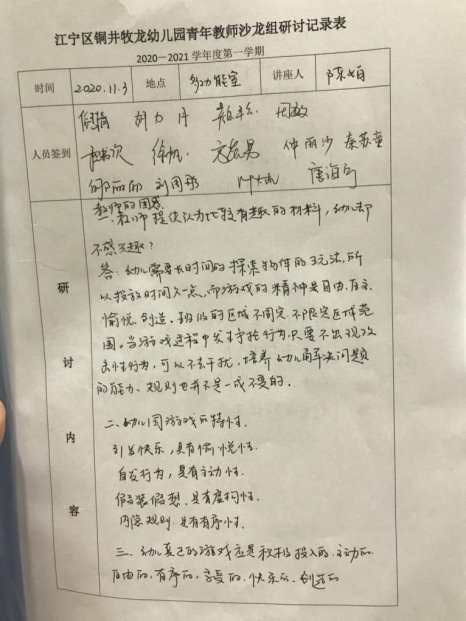 江宁区铜井牧龙幼儿园青年教师沙龙组研讨记录表
2020—2021学年度第一学期
时间 2020.11.3 地点 多功能室 讲座人 陈
人员签到
仲丽沙 秦苏童
研讨内容
教师的困惑
一、教师提供认为比较有趣的材料，幼儿却
不感兴趣？
答：幼儿需要长时间的探索物体的玩法，所
以投放时间久一点，而游戏的精神是自由、自主、
愉悦、创造。班级的区域不固定，不限定区域范
围。当游戏过程中发生争抢行为，只要不出现攻
击性行为，可以不去干扰，培养幼儿解决问题
的能力、规则也并不是一成不变的。
二、幼儿园游戏的特性。
引发快乐，具有愉悦性.
自发行为，具有主动性.
假装假想、具有虚构性.
内隐规则.具有有序性.
三、幼儿真正的游戏应是积极投入的、主动的
自由的、有序的、享受的、快乐的、创造的